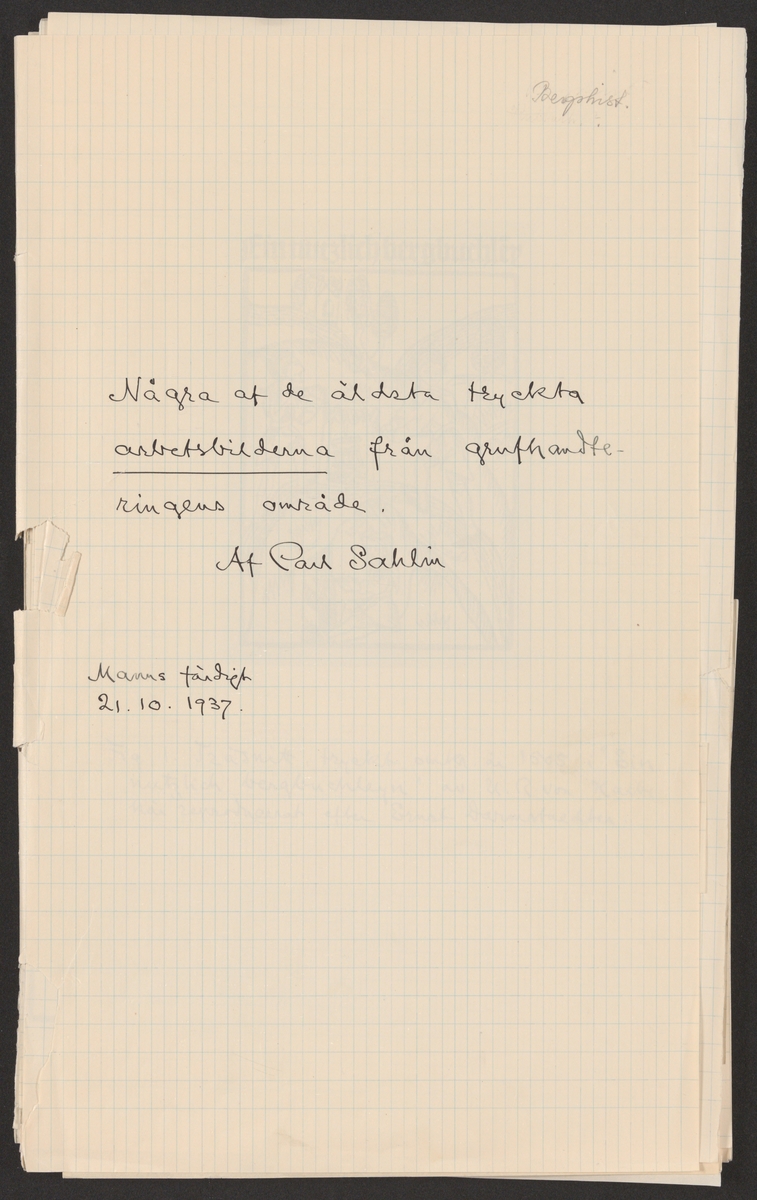 Berghist.
Några af de äldsta tryckta
arbetsbilderna från grufhandte-
ringens område.
Af Carl Sahlin
Manus färdigt
21.10.1937.